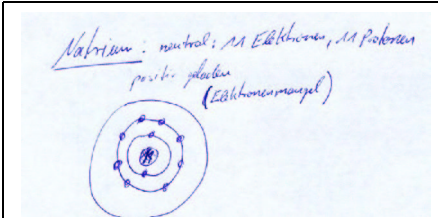 Natrium: neutral: 11 Elektronen, 11 Protonen
positiv geladen
(Elektronenmangel)